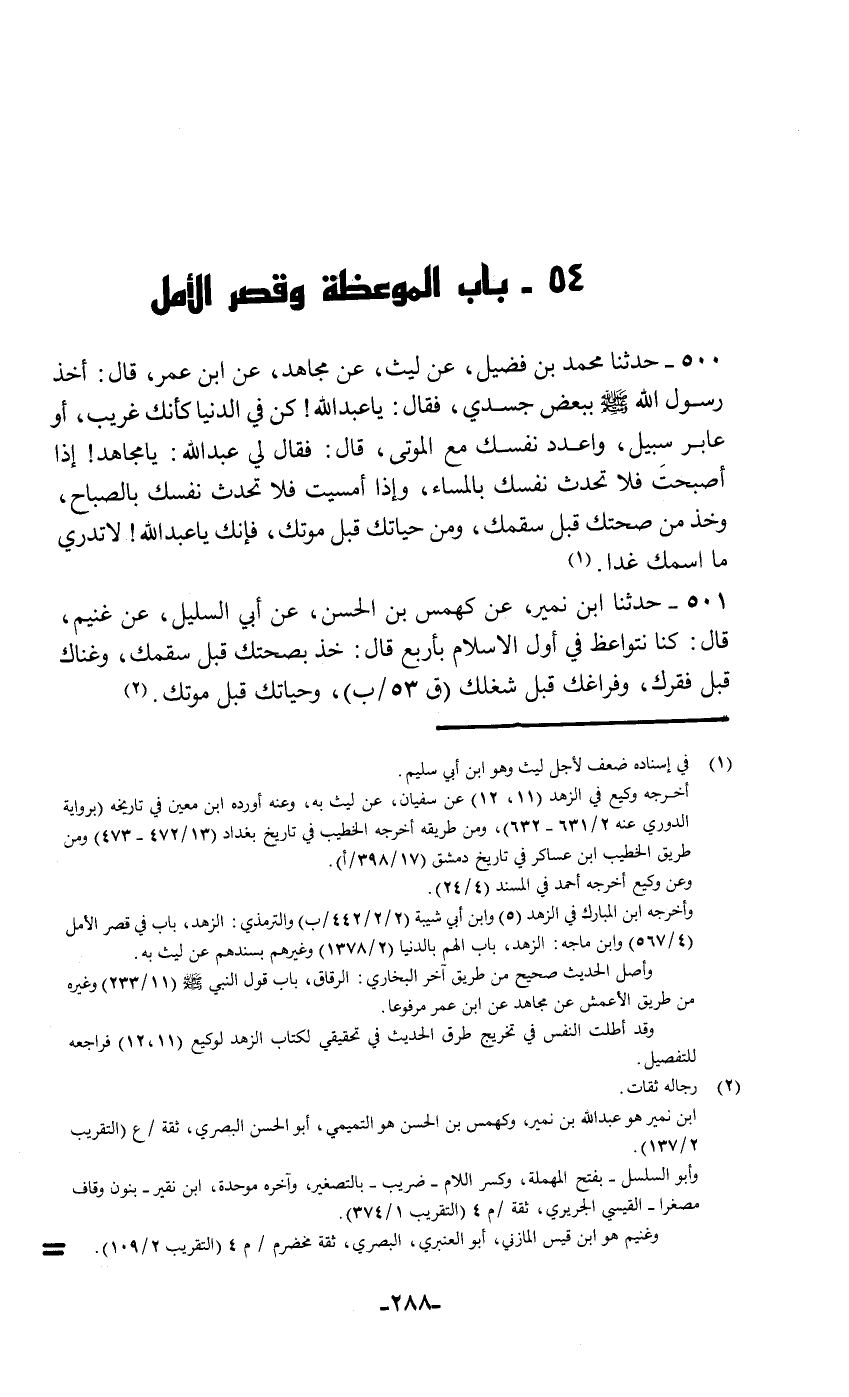 ٥٤ ـ باب الموعظة وقصر الأمل
٥٠٠ ـ حدثنا محمد بن فضيل، عن ليث، عن مجاهد، عن ابن عمر، قال: أخذ
رسول الله ﷺ ببعض جسدي، فقال: ياعبدالله! كن في الدنيا كأنك غريب، أو
عابر سبيل، واعدد نفسك مع الموتى، قال: فقال لي عبدالله: يامجاهد! إذا
أصبحتَ فلا تحدث نفسك بالمساء، وإذا أمسيت فلا تحدث نفسك بالصباح،
وخذ من صحتك قبل سقمك، ومن حياتك قبل موتك، فإنك ياعبدالله! لاتدري
ما اسمك غدا. (١)
٥٠١ ـ حدثنا ابن نمير، عن كهمس بن الحسن، عن أبي السليل، عن غنيم،
قال: كنا نتواعظ في أول الاسلام بأربع قال: خذ بصحتك قبل سقمك، وغناك
قبل فقرك، وفراغك قبل شغلك (ق ٥٣/ب)، وحياتك قبل موتك. (٢)
(١) في إسناده ضعف لأجل ليث وهو ابن أبي سليم.
أخرجه وكيع في الزهد (١١، ١٢) عن سفيان، عن ليث به، وعنه أورده ابن معين في تاريخه (برواية
الدوري عنه ٦٣١/٢ ـ ٦٣٢)، ومن طريقه أخرجه الخطيب في تاريخ بغداد (٤٧٢/١٣ ـ ٤٧٣) ومن
طريق الخطيب ابن عساكر في تاريخ دمشق (٣٩٨/١٧/أ).
وعن وكيع أخرجه أحمد في المسند (٢٤/٤).
وأخرجه ابن المبارك في الزهد (٥) وابن أبي شيبة (٤٤٢/٢/٢/ب) والترمذي: الزهد، باب في قصر الأمل
(٥٦٧/٤) وابن ماجه: الزهد، باب الهم بالدنيا (١٣٧٨/٢) وغيرهم بسندهم عن ليث به.
وأصل الحديث صحيح من طريق آخر البخاري: الرقاق، باب قول النبي ﷺ (٢٣٣/١١) وغيره
من طريق الأعمش عن مجاهد عن ابن عمر مرفوعا.
وقد أطلت النفس في تخريج طرق الحديث في تحقيقي لكتاب الزهد لوكيع (١٢،١١) فراجعه
للتفصيل.
(٢) رجاله ثقات.
ابن نمير هو عبدالله بن نمير، وكهمس بن الحسن هو التميمي، أبو الحسن البصري، ثقة / ع (التقريب
١٣٧/٢).
وأبو السلسل ـ بفتح المهملة، وكسر اللام ـ ضريب ـ بالتصغير، وآخره موحدة، ابن نقير ـ بنون وقاف
مصغرا ـ القيسي الجريري، ثقة /م ٤ (التقريب ٣٧٤/١).
وغنيم هو ابن قيس المازني، أبو العنبري، البصري، ثقة مخضرم / م ٤ (التقريب ١٠٩/٢). =
-٢٨٨-